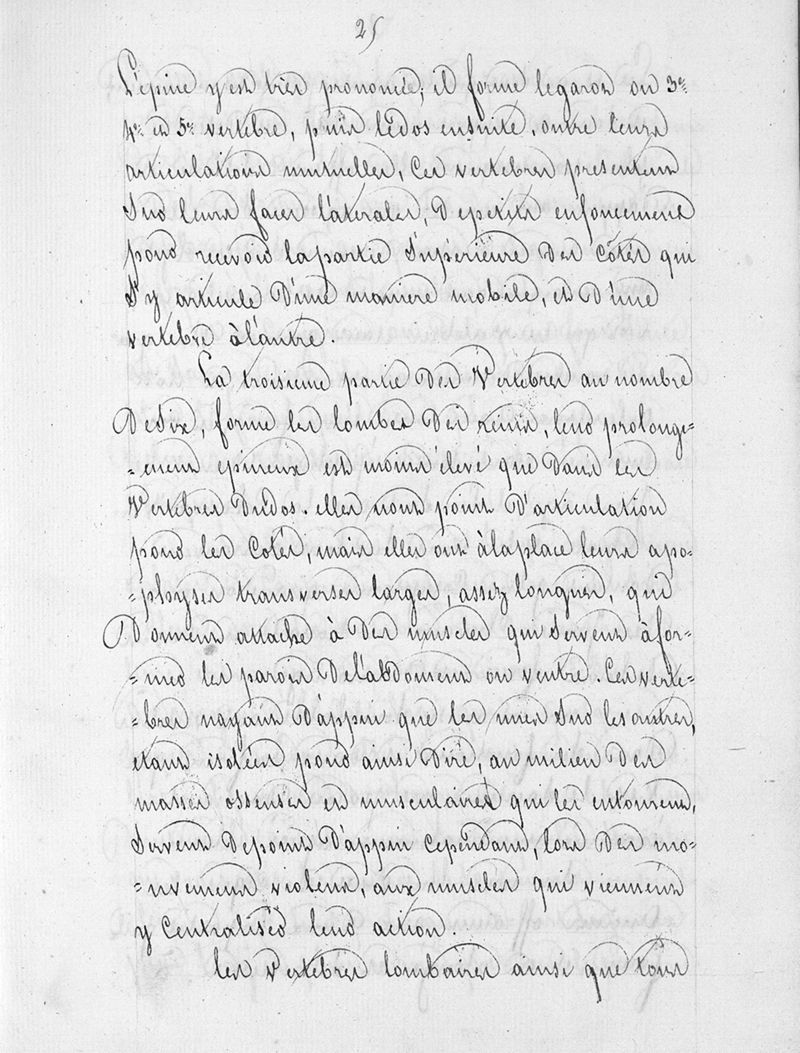 25
L'épine y est très prononcée; il forme le garot ou 3e
4e et 5e vertèbre, puis le dos ensuite, outre leurs
articulations mutuelles, Ces vertebres presentent
Sur leurs faces latérales, De petits enfoncements
pour recevoir la partie Supérieure Des Côtés qui
S'y articule D'une maniere mobile, et D'une
vertebre à l'autre.
La troisieme partie Des Vertebres au nombre
De Six, forme les lombes Des reins, leur prolonge=
=ment epineux est moins élevé que Dans les
Vertebres Du dos. elles n'ont point D'articulation
pour les Cotés, mais elles ont à la place leurs apo=
=physes transverses larges, assez longues, qui
Donnent attache à Des muscles qui Servent à for=
=mer les parois De l'abdoment ou ventre. Ces verte=
=bres n'ayant D'appui que les unes Sur les autres,
etant isolées pour ainsi Dire, au milieu Des
masses osseuses et musculaires qui les entourent,
Servent De point D'appui cependant, lors Des mo=
=uvement violent, aux muscles qui viennent
y Centraliser leur action.
Les Vertebres lombaires ainsi que tous